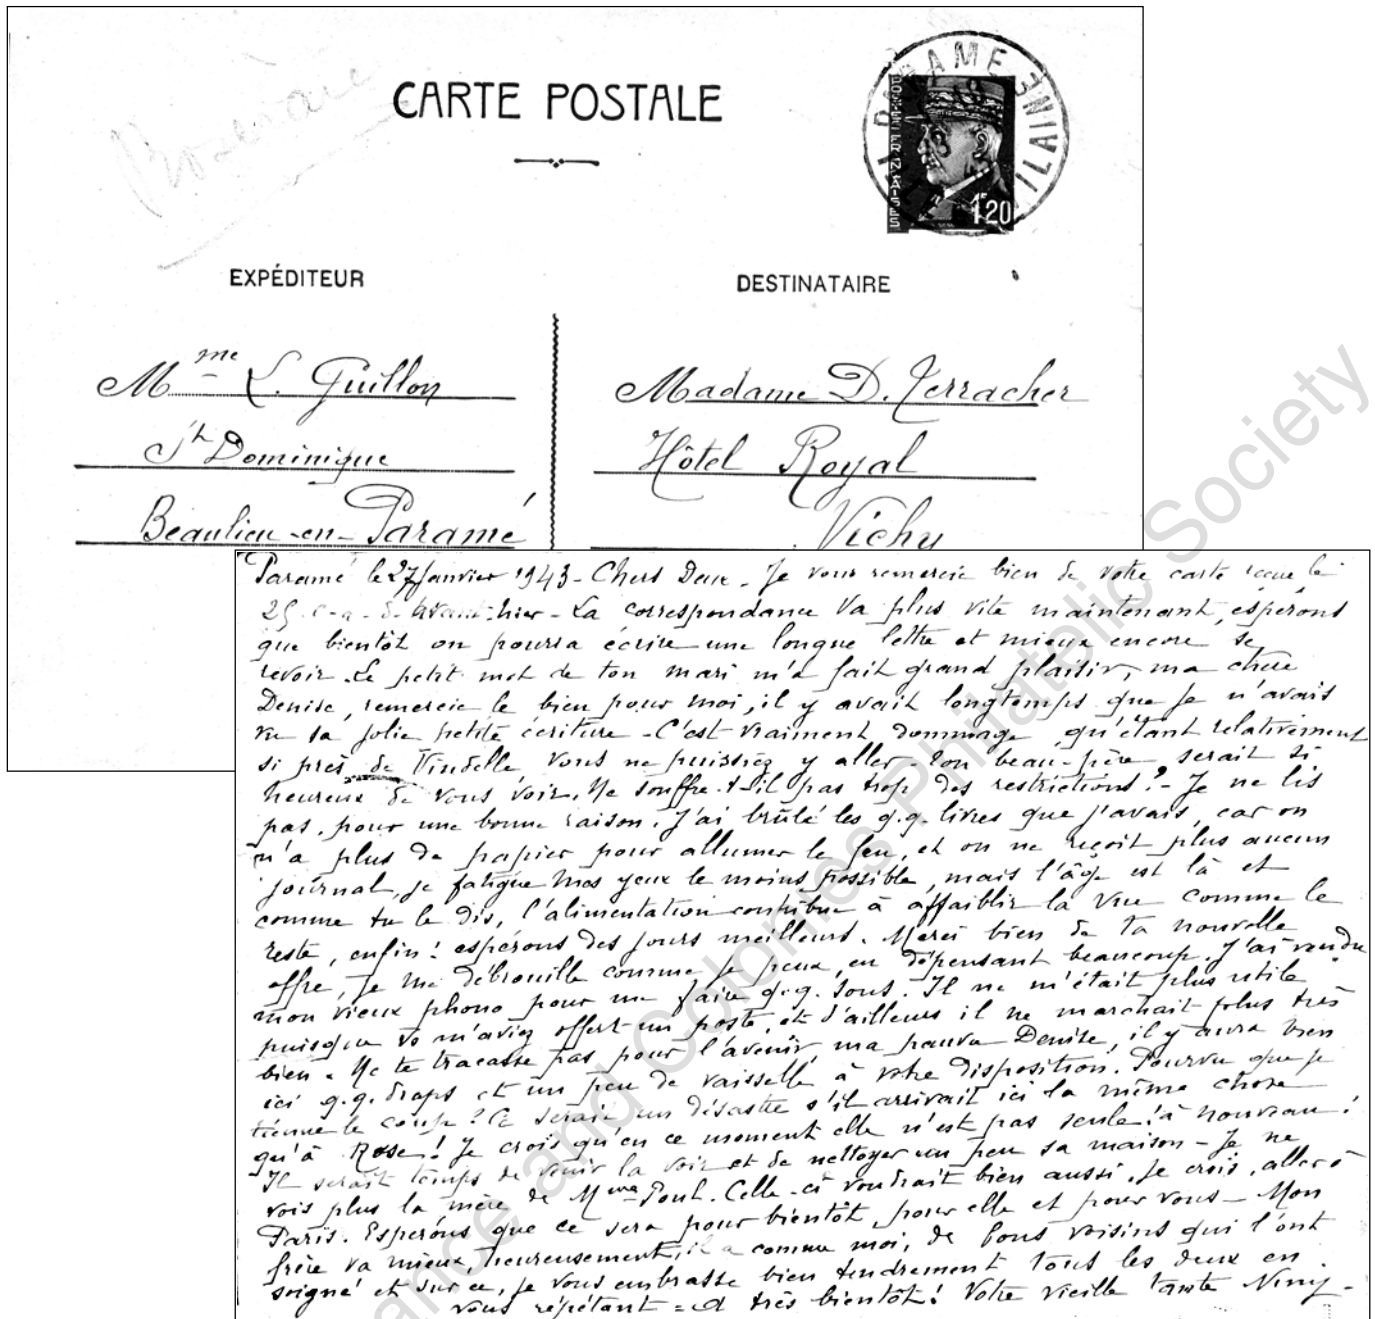 CARTE POSTALE
PARAMÉ ILLE-ET-VILAINE
POSTES FRANÇAISES
1F20
EXPÉDITEUR
DESTINATAIRE
Mme L. Guillon
St Dominique
Beaulieu-en-Paramé
Madame D. Terracher
Hôtel Royal
Vichy
Paramé le 27 Janvier 1943 - Chers Deux - Je vous remercie bien de votre carte reçue le
25 c-a-d. avant-hier - La correspondance va plus vite maintenant, espérons
que bientôt on pourra écrire une longue lettre et mieux encore se
revoir. Le petit mot de ton mari m'a fait grand plaisir, ma chère
Denise, remercie le bien pour moi, il y avait longtemps que je n'avais
vu sa jolie petite écriture - C'est vraiment dommage qu'étant relativement
si près de Vindelle vous ne puissiez y aller - Ton beau-père serait si
heureux de vous voir. Ne souffre-t-il pas trop des restrictions? - Je ne lis
pas, pour une bonne raison. J'ai brûlé les q.q. livres que j'avais, car on
n'a plus de papier pour allumer le feu, et on ne reçoit plus aucun
journal, je fatigue mes yeux le moins possible, mais l'âge est là et
comme tu le dis, l'alimentation contribue à affaiblir la vue comme le
reste, enfin! espérons des jours meilleurs. Merci bien de ta nouvelle
offre, je me débrouille comme je peux, en dépensant beaucoup. J'ai vendu
mon vieux phono pour me faire q.q. sous. Il ne m'était plus utile
puisque vs m'aviez offert un poste, et d'ailleurs il ne marchait plus très
bien. Ne te tracasse pas pour l'avenir, ma pauvre Denise, il y aura bien
ici q.q. draps et un peu de vaisselle à votre disposition. Pourvu que je
tienne le coup? Ce serait un désastre s'il arrivait ici la même chose
qu'à Rose! Je crois qu'en ce moment elle n'est pas seule! à nouveau!
Il serait temps de venir la voir et de nettoyer un peu sa maison - Je ne
vois plus la mère de Mme Pouh. Celle-ci voudrait bien aussi, je crois, aller à
Paris. Espérons que ce sera pour bientôt, pour elle et pour vous - Mon
frère va mieux, heureusement, il a comme moi, de bons voisins qui l'ont
soigné et sur ce, je vous embrasse bien tendrement tous les deux en
vous répétant = à très bientôt! Votre vieille tante Niny -
France and Colonies Philatelic Society